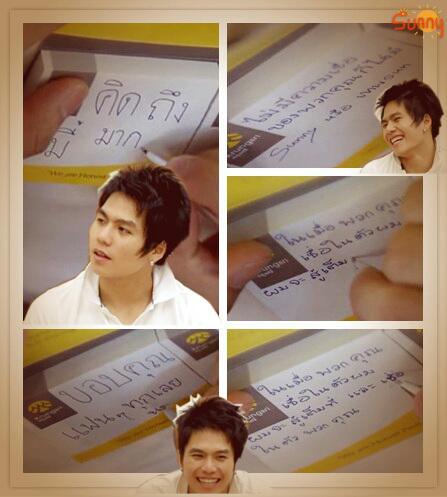 Sunny
คิดถึง
มี๊ มาก
ไม่มีความเชื่อ
ของพวกคุณก็ไม่มี
Sunny หรือ
ในเมื่อ พวก คุณ
เชื่อใน ตัว ผม
ผมจะ สู้เต็ม
ขอบคุณ
แฟนๆ ทุกเลย
ในเมื่อ พวก คุณ
เชื่อใน ตัว ผม
ผมจะ สู้เต็มที่ และ เชื่อ
ใน ตัว พวก คุณ